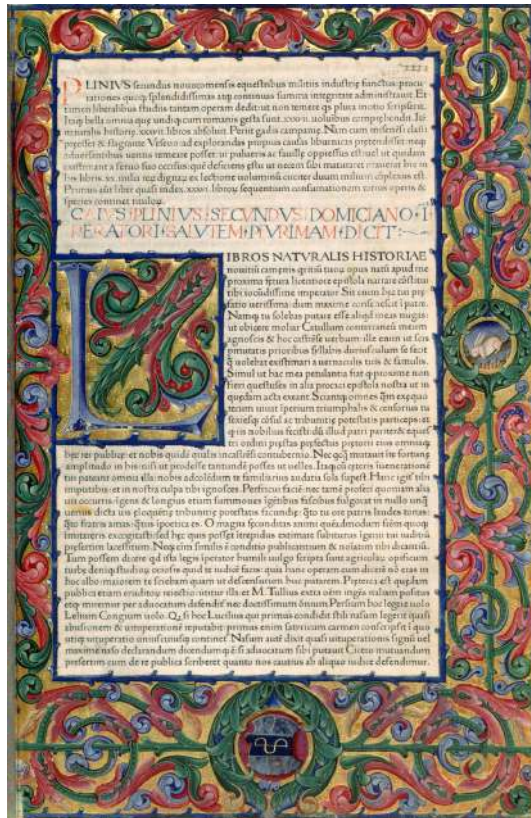 PLINIVS secundus nouocomensis equestribus militiis industrie functus: procu
rationes quoq; splendidissimas atq; continuas summa integritate administrauit. Et
tamen liberalibus studiis tantam operam dedit: ut non temere quis plura in otio scripserit.
Itaq; bella omnia quæ unquam cum romanis gesta sunt .xxxvii. uoluminibus comprehendit. Itẽ
naturalis historiæ .xxxvii. libros absoluit. Periit clade campaniæ. Nam cum misenensi classi
præesset & flagrante Veseuo ad explorandas propius causas liburnicas prætendisset: neq;
aduersantibus uentis remeare posset: ui pulueris ac fauillæ oppressus est: uel ut quidam
existimant a seruo suo occisus: quem deficiens æstu ut necem sibi maturaret orauerat: hic in
his libris .xx. milia rerum dignarum ex lectione uoluminum circiter duum milium complexus est.
Primus autem liber quasi index .xxxvi. librorum sequentium consumationem totius operis &
species continet titulorum.
CAIVS PLINIVS SECVNDVS DOMICIANO I
PERATORI SALVTEM PLVRIMAM DICIT
LIBROS NATVRALIS HISTORIAE
nouitiũ camenis quiritiũ tuorũ opus natũ apud me
proxima fœtura licentiore epistola narrare cõstitui
tibi iocũdissime imperator. Sit enim hæc tui præ
fatio uerissima: dum maximi consenescit ĩ patre.
Namq; tu solebas putare esse aliqd meas nugas:
ut obiicere moliar Catullum conterraneũ meum
agnoscis & hoc castrẽse uerbum: ille enim ut scis
permutatis prioribus syllabis duriusculum se fecit
q̃ uolebat existimari a uernaculis tuis & famulis.
Simul ut hac mea petulantia fiat quod proxime non
fieri questus es in alia procaci epistola nostra: ut in
quædam acta exeant. Sciantq; omnes q̃m ex æquo
tecum uiuat iperium: triumphalis & censorius tu
sexiesq; cõsul ac tribunitiæ potestatis particeps: &
quod iis nobilius fecisti: dũ illud patri pariter & eques
tri ordini præstas: præfectus prætorii eius: omniaq;
hæc rei publicæ: et nobis quidẽ qualis in castrẽsi contubernio. Nec qcq̃ mutauit in te fortunæ
amplitudo in his: nisi ut prodesse tantundẽ posses ut uelles. Itaq; cũ cæteris in uenerationẽ
tui pateant omnia illa: nobis ad colẽdum te familiarius audatia sola supest. Hanc igit tibi
imputabis: et in nostra culpa tibi ignosces. Perfricui faciẽ: nec tamẽ profeci: quoniam alia
uia occurris: ingens & longius etiam summoues ingẽtibus fascibus: fulgurat in nullo unq̃
uerius dicta uis eloquẽtiæ: tribunitiæ potestatis facundia: q̃to tu ore patris laudes tonas:
q̃to fratris amas: q̃tus ĩ poetica es. O magna fœcunditas animi: quẽadmodum fratrẽ quoq;
imitareris excogitasti: sed hæc quis posset itrepidus extimare subiturus igenii tui iuditiũ
præsertim lacessitum. Neq; enim similis ẽ conditio publicantium & nominatim tibi dicantiũ.
Tum possem dicere: qd ista legis iperator: humili uulgo scripta sunt: agricolarũ opificum
turbæ: deniq; studiorũ ociosis: quid te iudicẽ facis: quia hanc operam cum dicerẽ nõ eras in
hoc albo: maiorem te sciebam quam ut descensurum huc putarem. Præterea est quædam
publica etiam eruditorũ reiectio: utitur illa et M. Tullius extra oẽm ingẽii aleam positus:
et quod miremur per aduocatum defenditur: nec doctissimum õnium Persium hæc legere uolo
Lelium Congum uolo. Qd si hoc Lucilius qui primus condidit stili nasum
abusionem & uituperationẽ reputabit: primus enim satyricum carmen conscripsit ĩ quo
utiq; uituperatio uniuscuiusq; continet. Nasum autẽ dixit quasi uituperationis signũ: uel
maxime naso declarandum dicendumq; ẽ si aduocatum sibi putauit Cicero mutuandum
præsertim cum de re publica scriberet: quanto nos cautius ab aliquo iudice defendimur.